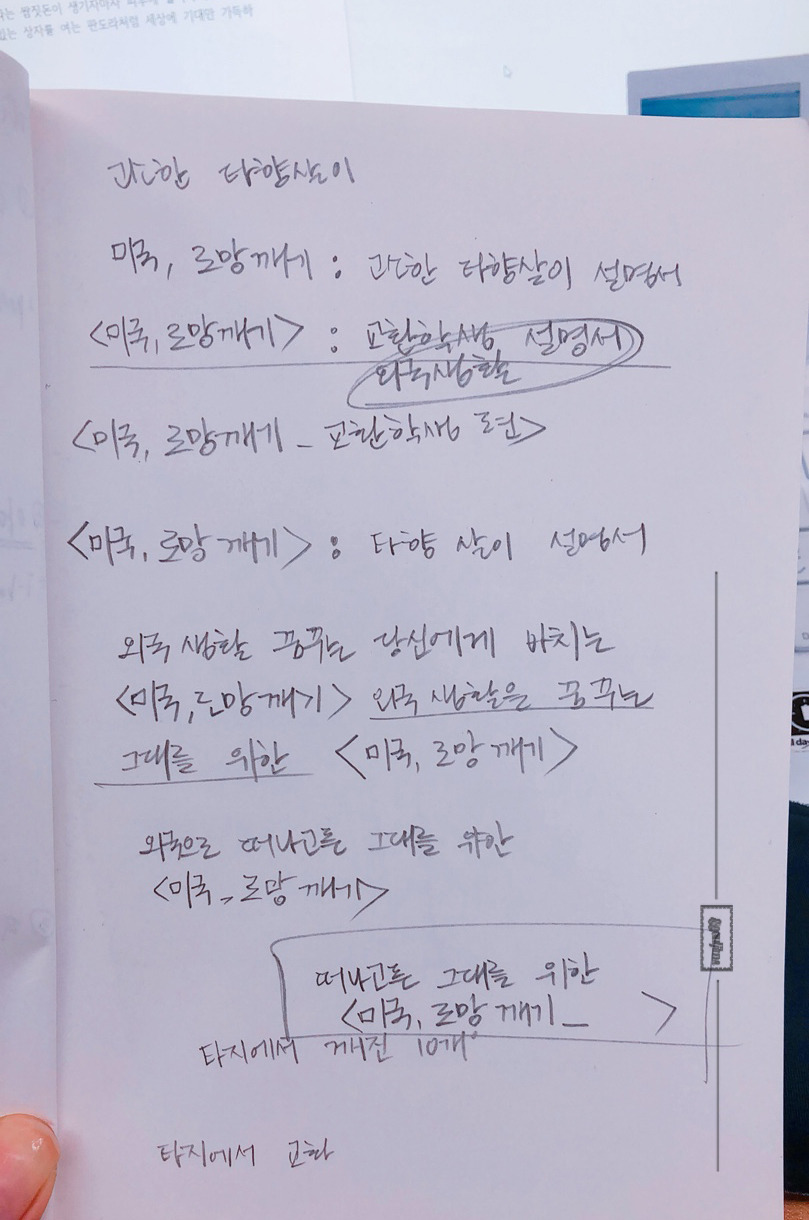 있는 상자를 여는 판도라처럼 세상에 기대만 가득하
과한 타향살이
미국, 로망깨기 : 과한 타향살이 설명서
<미국, 로망깨기> : 교환학생 설명서
외국생활
<미국, 로망깨기 _ 교환학생 로편>
<미국, 로망 깨기> : 타향 살이 설명서
외국 생활 꿈꾸는 당신에게 바치는
<미국, 로망 깨기> 외국 생활을 꿈꾸는
그대를 위한 <미국, 로망 깨기>
외국으로 떠나고픈 그대를 위한
<미국 _ 로망 깨기>
떠나고픈 그대를 위한
<미국, 로망 깨기 _ >
타지에서 깨진 10개
타지에서 교환